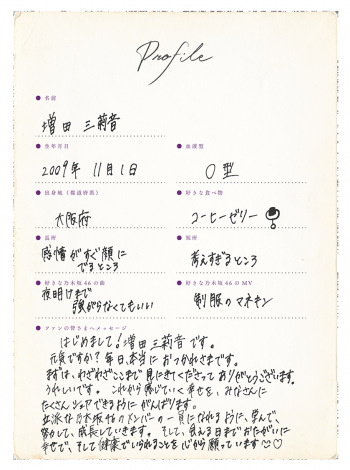 Profile
名前
増田 三莉音
生年月日
血液型
2009年 11月1日
O型
出身地（都道府県）
好きな食べ物
大阪府
コーヒーゼリー
長所
短所
感情がすぐ顔に
でるところ
考えすぎるところ
好きな乃木坂46の曲
好きな乃木坂46のMV
夜明けまで
強がらなくてもいい
制服のマネキン
ファンの皆さまへメッセージ
はじめまして！増田三莉音です。
元気ですか？毎日、本当におつかれさまです。
まずは、わざわざここまで見にきてくださってありがとうございます。
うれしいです。これから感じていく幸せを、みなさんに
たくさんシェアできるようにがんばります。
立派な乃木坂46のメンバーの一員になれるように、学んで、
努力して、成長していきます。そして、会える日までおたがいに
幸せで、そして健康でいられることを心から願っています♡♡